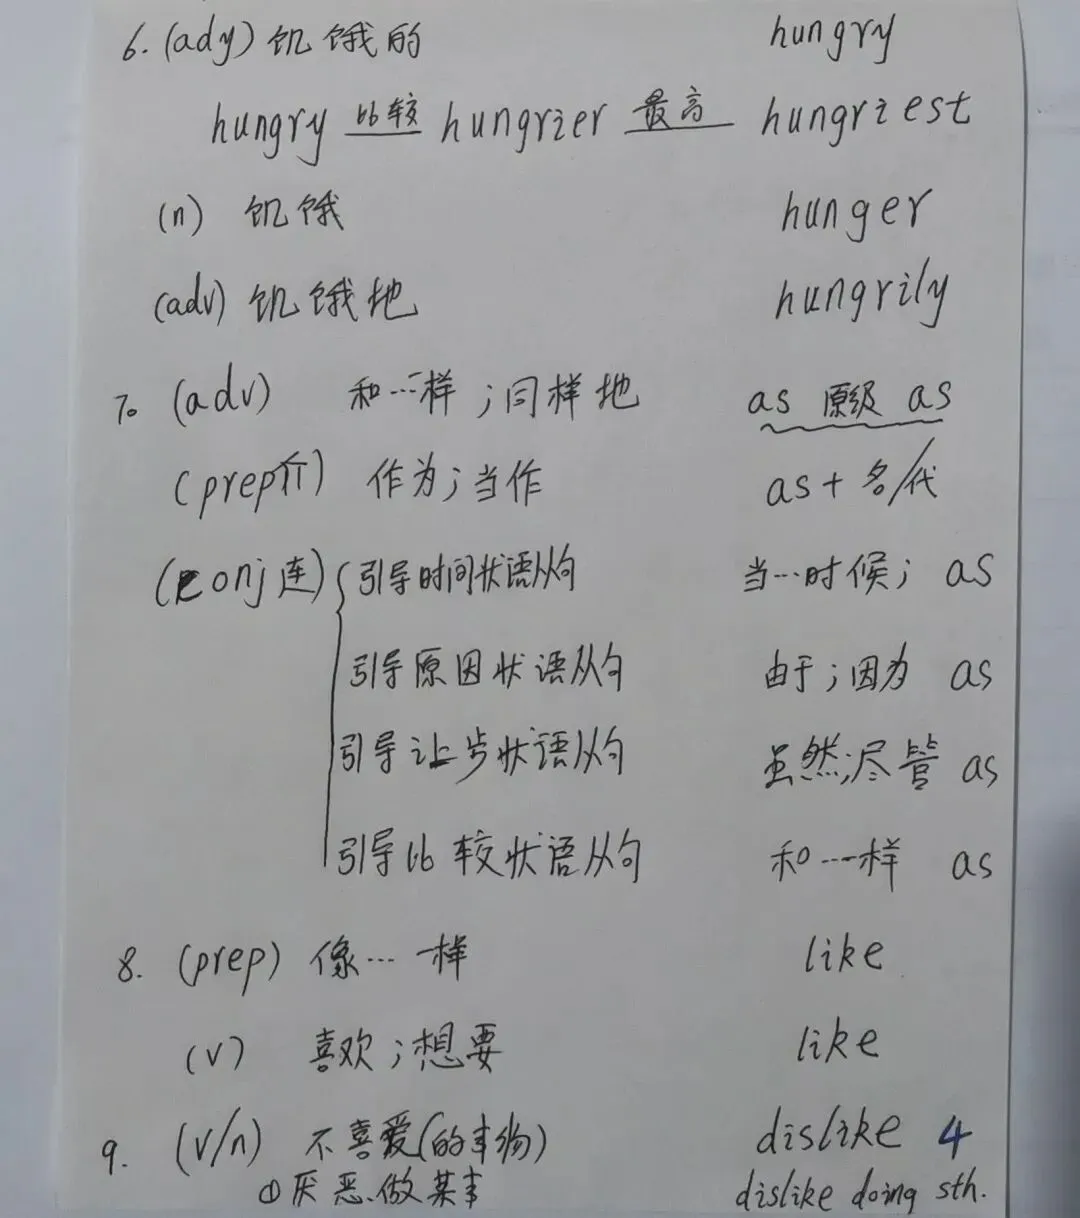 6. (ady) 饥饿的 hungry
hungry 比较 hungrier 最高 hungriest
(n) 饥饿 hunger
(adv) 饥饿地 hungrily
7. (adv) 和…一样；同样地 as 原级 as
(prep介) 作为；当作 as + 名/代
(conj连) 引导时间状语从句 当…时候； as
引导原因状语从句 由于；因为 as
引导让步状语从句 虽然；尽管 as
引导比较状语从句 和…一样 as
8. (prep) 像…一样 like
(v) 喜欢；想要 like
9. (v/n) 不喜爱(的事物) dislike 4
①厌恶做某事 dislike doing sth.